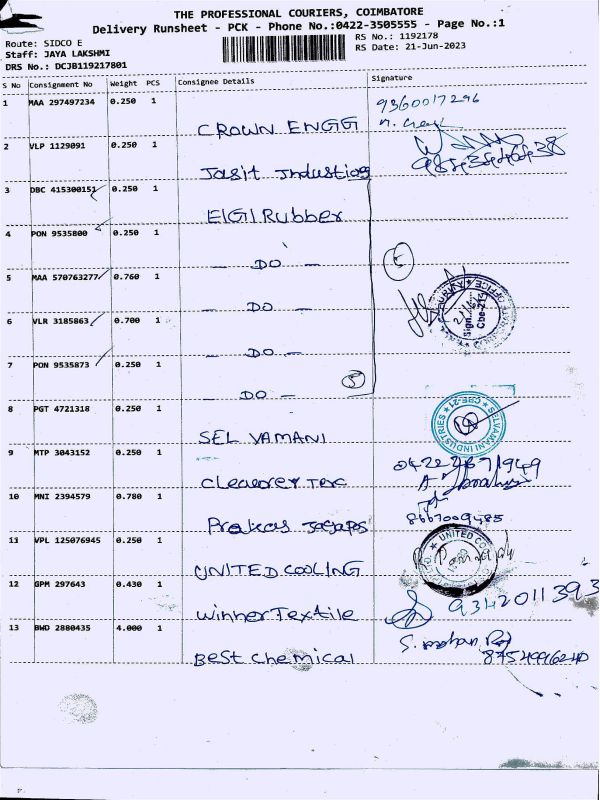 THE PROFESSIONAL COURIERS, COIMBATORE
Delivery Runsheet - PCK - Phone No.:0422-3505555 - Page No.:1
Route: SIDCO E
Staff: JAYA LAKSHMI
DRS No.: DCJB119217801
RS No.: 1192178
RS Date: 21-Jun-2023
S No Consignment No Weight PCS Consignee Details Signature
1 MAA 297497234 0.250 1 CROWN ENGG 9360017296
2 VLP 1129091 0.250 1 Jasit Industries
3 DBC 415300151 0.250 1 ElGI Rubber
4 PON 9535800 0.250 1 - DO -
5 MAA 570763277 0.760 1 - DO -
6 VLR 3185863 0.700 1 - DO -
7 PON 9535873 0.250 1 - DO -
5
SECURITY OFFICE
Sign.
Cbe-21
8 PGT 4721318 0.250 1 SELVAMANI
SELVAMANI INDUSTRIES CBE-21
9 MTP 3043152 0.250 1 0422 2671949
10 MNI 2394579 0.780 1 Prakas 8667009485
11 VPL 125076945 0.250 1 UNITED COOLING
UNITED
12 GPM 297643 0.430 1 Winner Textile 9342011393
13 BWD 2880435 4.000 1 Best Chemical